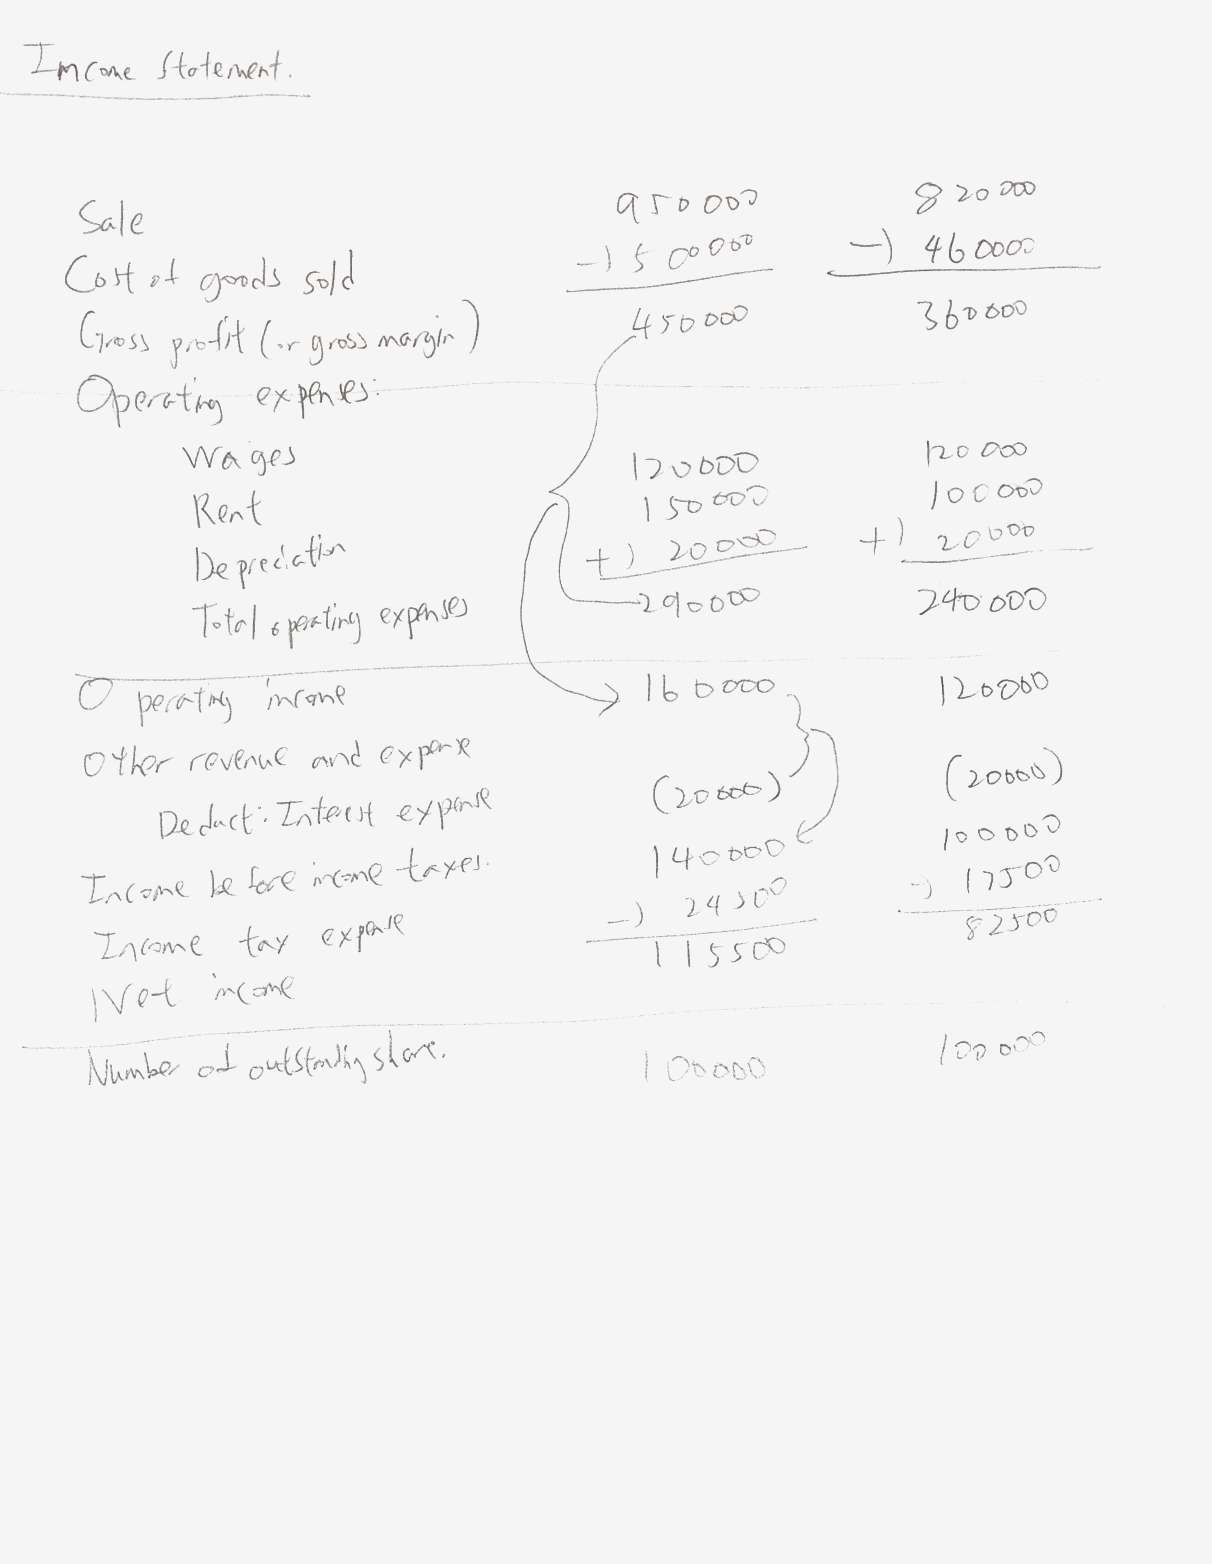 Income Statement.
Sale 950000 820000
Cost of goods sold -) 500000 -) 460000
Gross profit (or gross margin) 450000 360000
Operating expenses:
Wages 120000 120000
Rent 150000 100000
Depreciation +) 20000 +) 20000
Total operating expenses 290000 240000
Operating income 160000 120000
Other revenue and expense
Deduct: Interest expense (20000) (20000)
Income before income taxes. 140000 100000
Income tax expense -) 24500 -) 17500
Net income 115500 82500
Number of outstanding share. 100000 100000